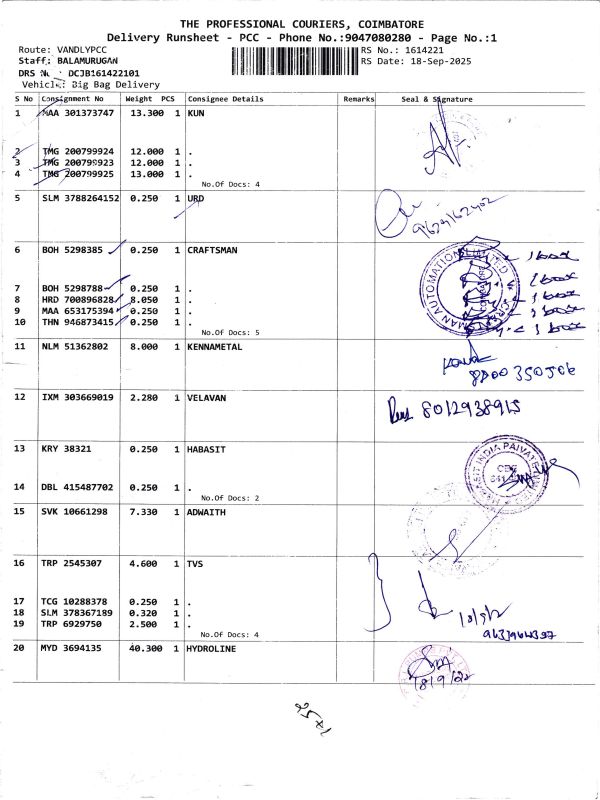 THE PROFESSIONAL COURIERS, COIMBATORE
Delivery Runsheet - PCC - Phone No.:9047080280 - Page No.:1
Route: VANDLYPCC RS No.: 1614221
Staff: BALAMURUGAN RS Date: 18-Sep-2025
DRS No. DCJB161422101
Vehicle: Big Bag Delivery
S No Consignment No Weight PCS Consignee Details Remarks Seal & Signature
1 MAA 301373747 13.300 1 KUN
2 TMG 200799924 12.000 1 .
3 TMG 200799923 12.000 1 .
4 TMG 200799925 13.000 1 .
No.Of Docs: 4
5 SLM 3788264152 0.250 1 URD
6 BOH 5298385 0.250 1 CRAFTSMAN 1 box
7 BOH 5298788 0.250 1 . 1 box
8 HRD 700896828 8.050 1 . 1 box
9 MAA 653175394 0.250 1 . 1 box
10 THN 946873415 0.250 1 . 1 box
No.Of Docs: 5
11 NLM 51362802 8.000 1 KENNAMETAL
12 IXM 303669019 2.280 1 VELAVAN 8012938915
13 KRY 38321 0.250 1 HABASIT
14 DBL 415487702 0.250 1 .
No.Of Docs: 2
15 SVK 10661298 7.330 1 ADWAITH
16 TRP 2545307 4.600 1 TVS
17 TCG 10288378 0.250 1 .
18 SLM 378367189 0.320 1 .
19 TRP 6929750 2.500 1 .
No.Of Docs: 4
20 MYD 3694135 40.300 1 HYDROLINE